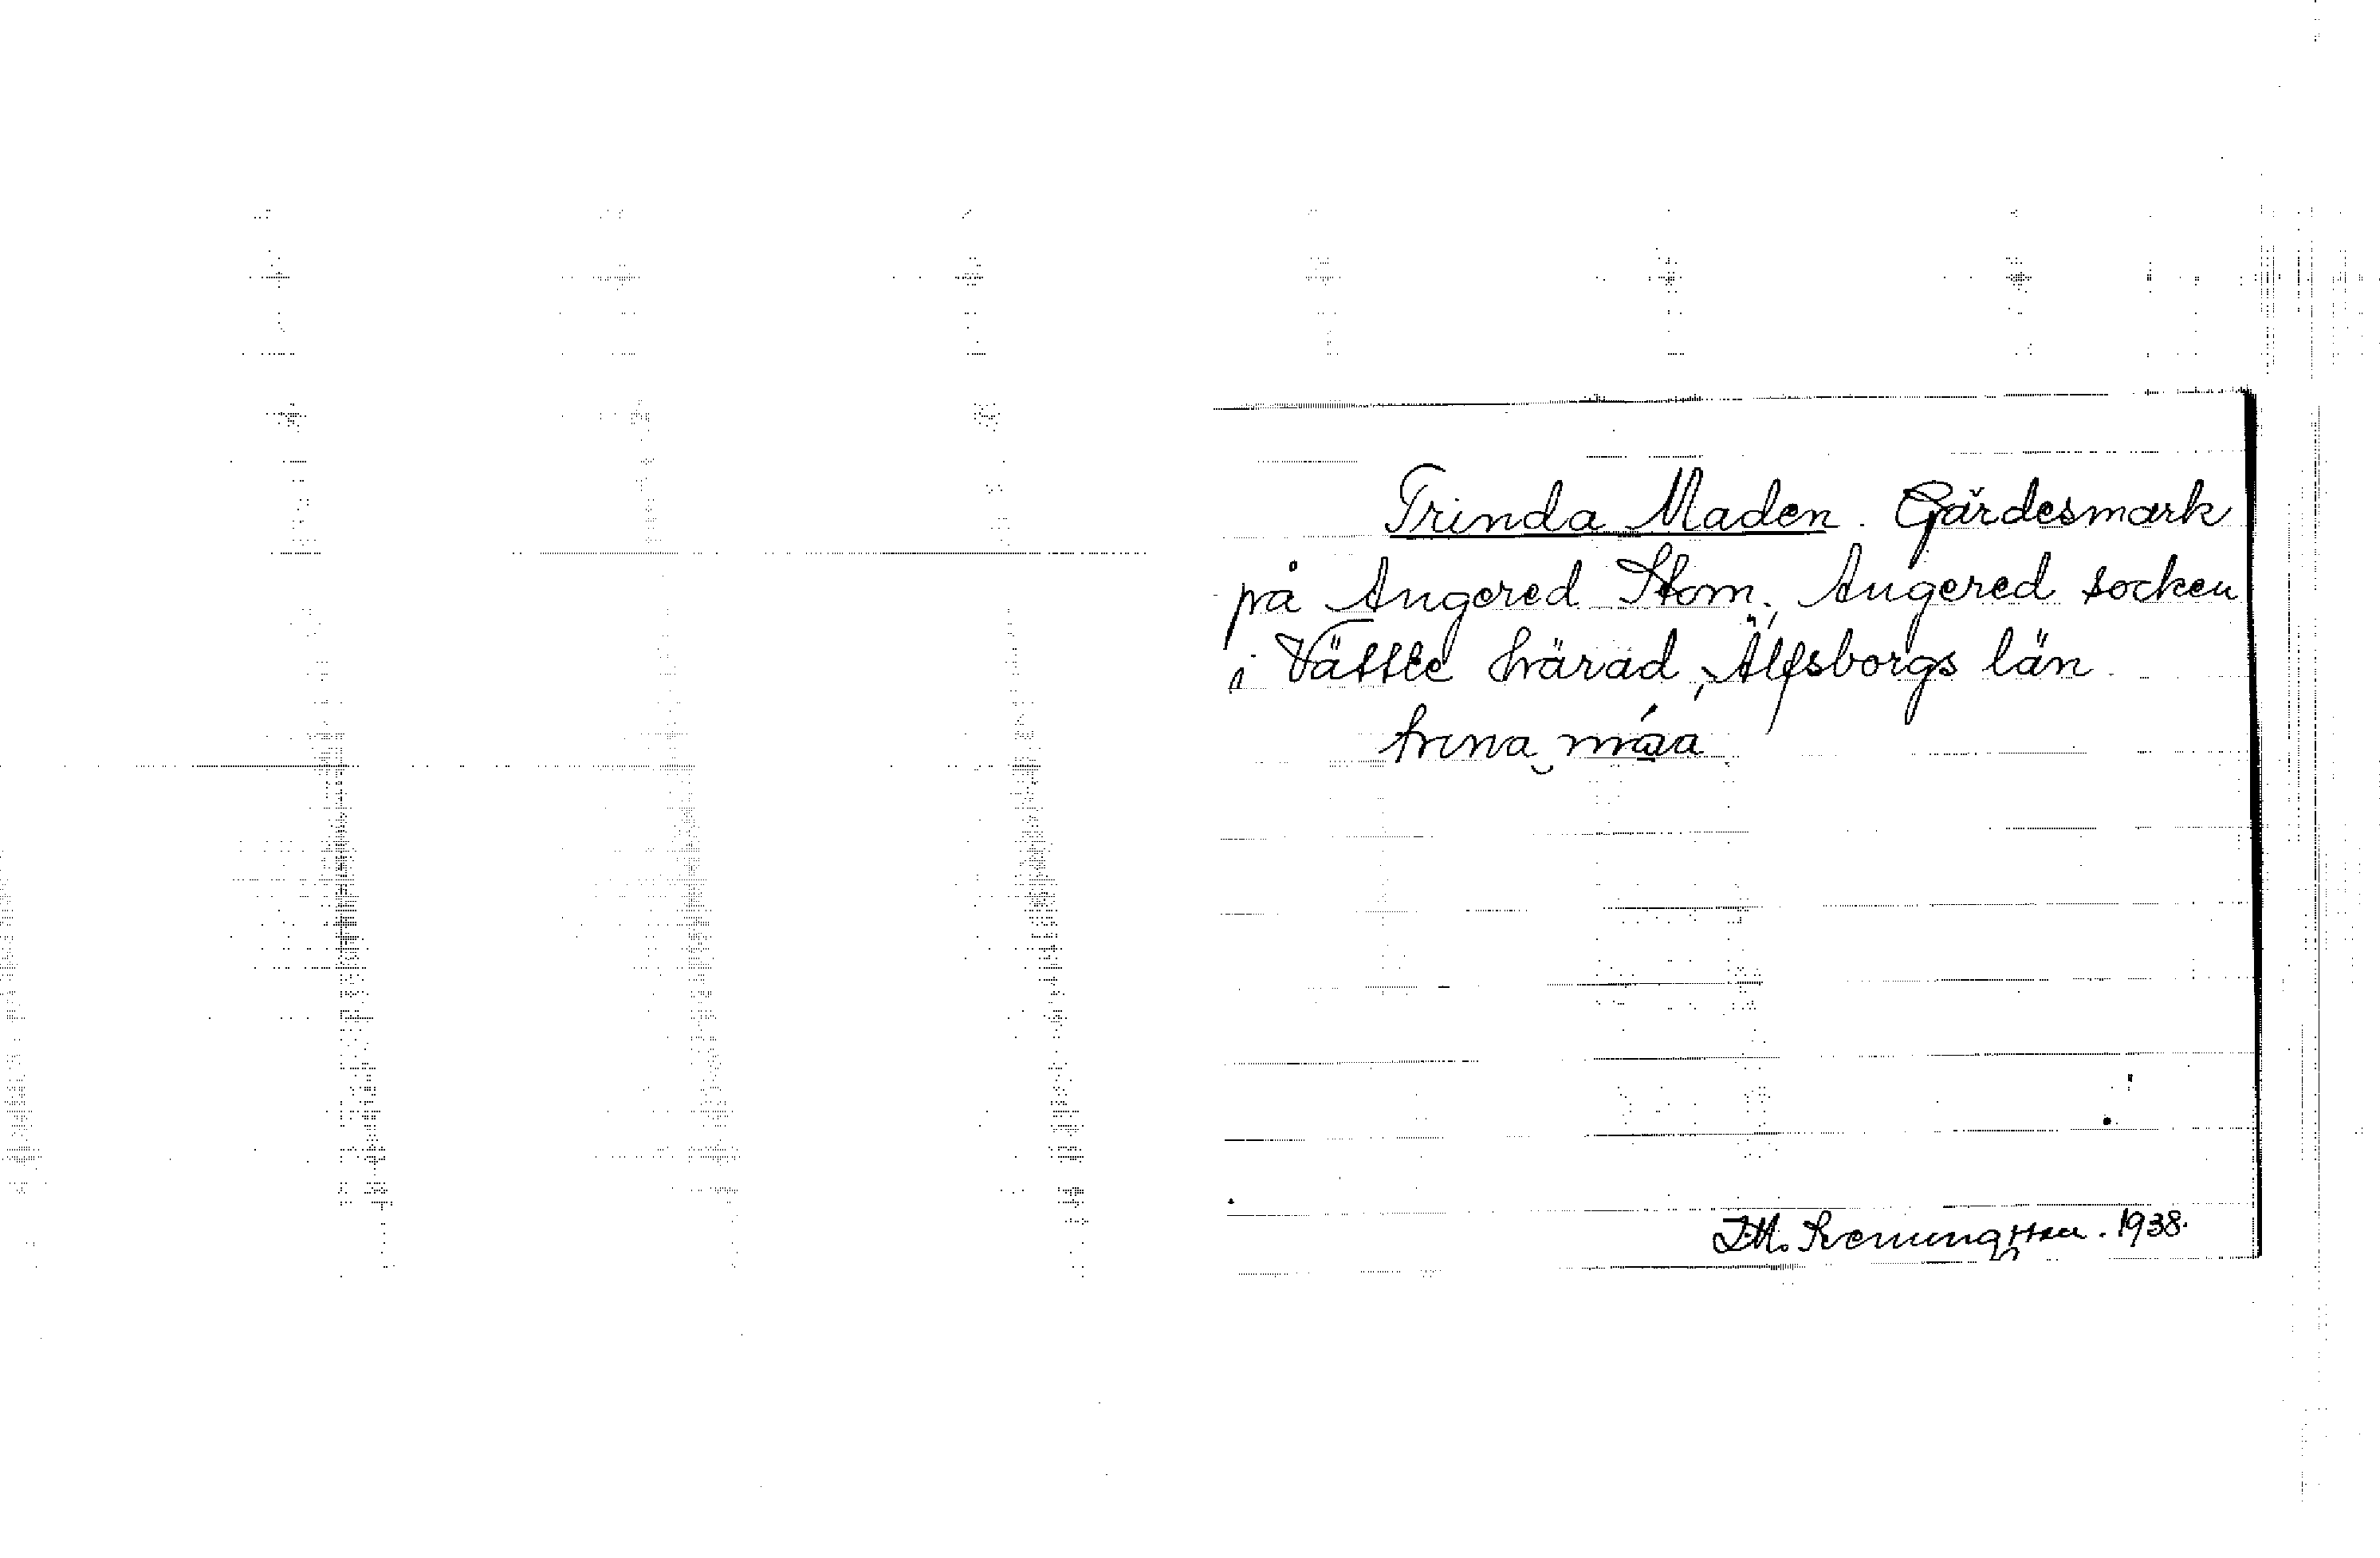 Trinda Maden. Gärdesmark
på Angered Stom, Angered socken
i Vättle härad, Älfsborgs län.
trina máa
J.M. Svenungsson. 1938.